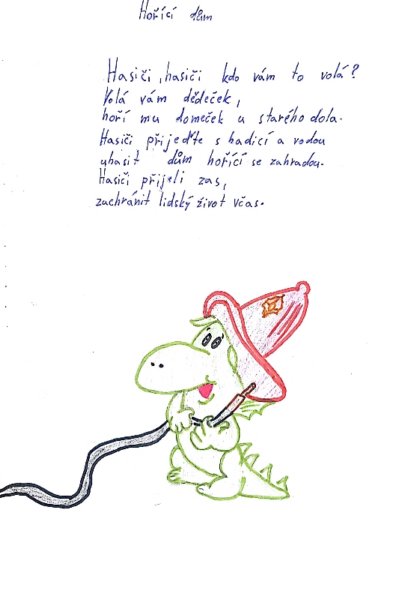 Hořící dům
Hasiči, hasiči kdo vám to volá?
Volá vám dědeček,
hoří mu domeček u starého dola.
Hasiči přijeďte s hadicí a vodou
uhasit dům hořící se zahradou.
Hasiči přijeli zas,
zachránit lidský život včas.